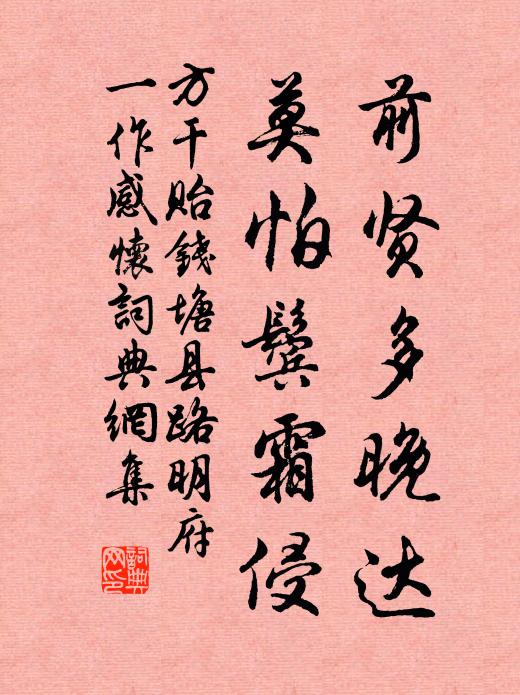 前贤多晚达
莫怕鬓霜侵
方干贻錢塘县路明府
一作感懷詞典網集
詞典
网印